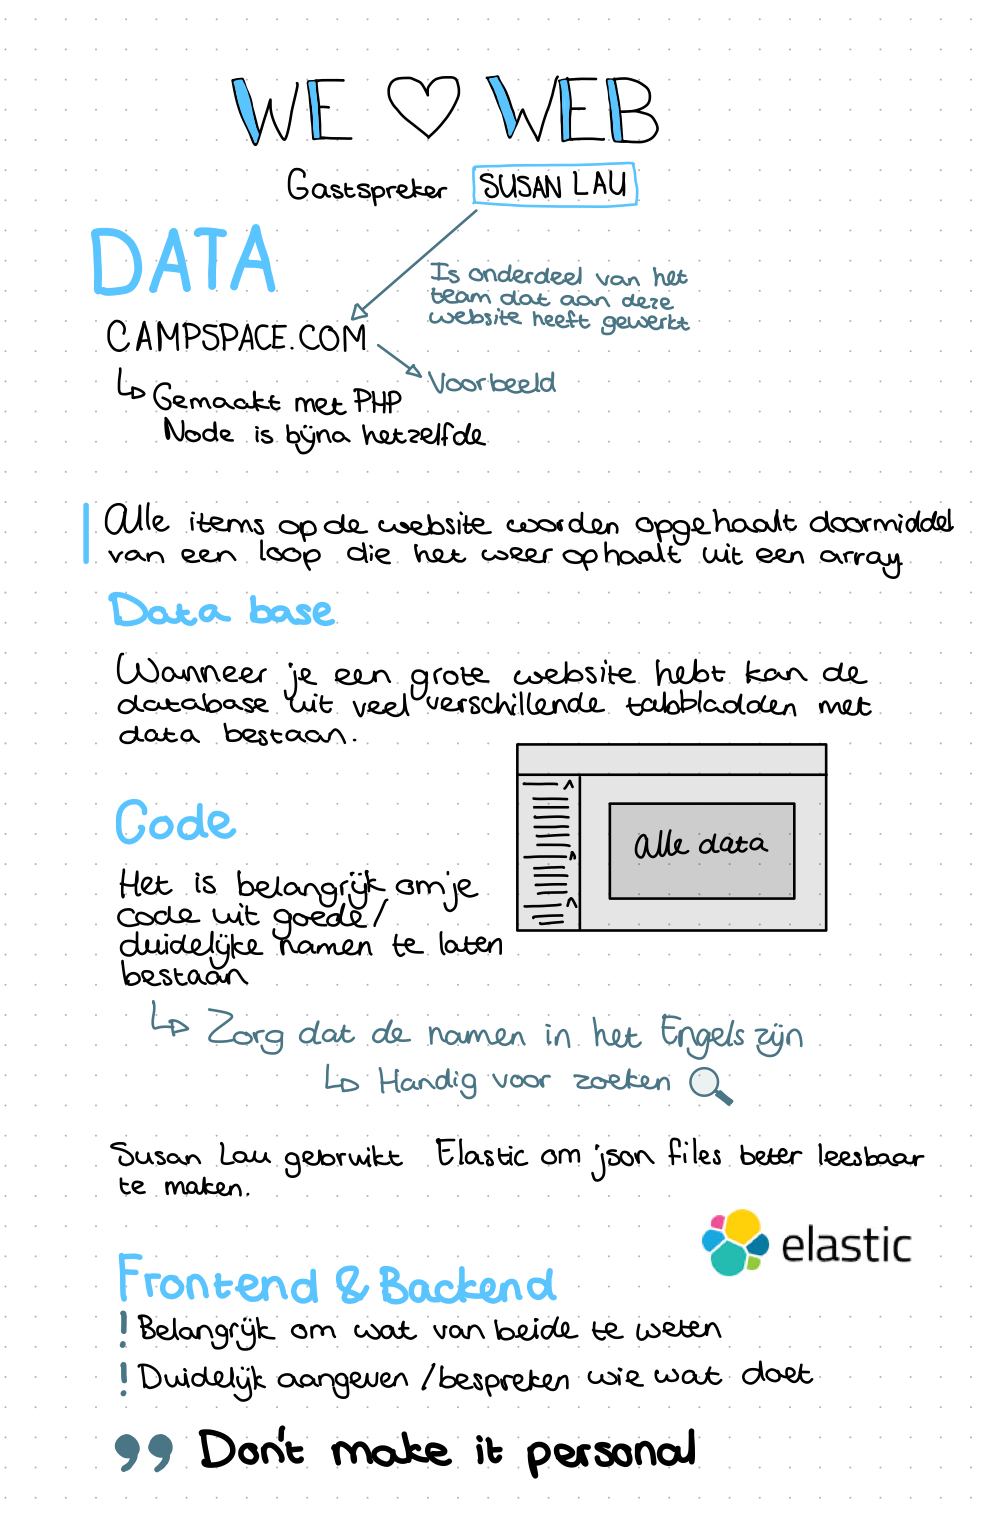 WE ♡ WEB
Gastspreker SUSAN LAU
DATA
Is onderdeel van het
team dat aan deze
website heeft gewerkt
CAMPSPACE.COM
Voorbeeld
Gemaakt met PHP
Node is bijna hetzelfde
Alle items op de website worden opgehaalt doormiddel
van een loop die het weer ophaalt uit een array
Data base
Wanneer je een grote website hebt kan de
database uit veel verschillende tabbladden met
data bestaan.
Code
alle data
Het is belangrijk om je
code uit goede/
duidelijke namen te laten
bestaan
Zorg dat de namen in het Engels zijn
Handig voor zoeken
Susan Lau gebruikt Elastic om json files beter leesbaar
te maken.
elastic
Frontend & Backend
! Belangrijk om wat van beide te weten
! Duidelijk aangeven / bespreken wie wat doet
” Don't make it personal